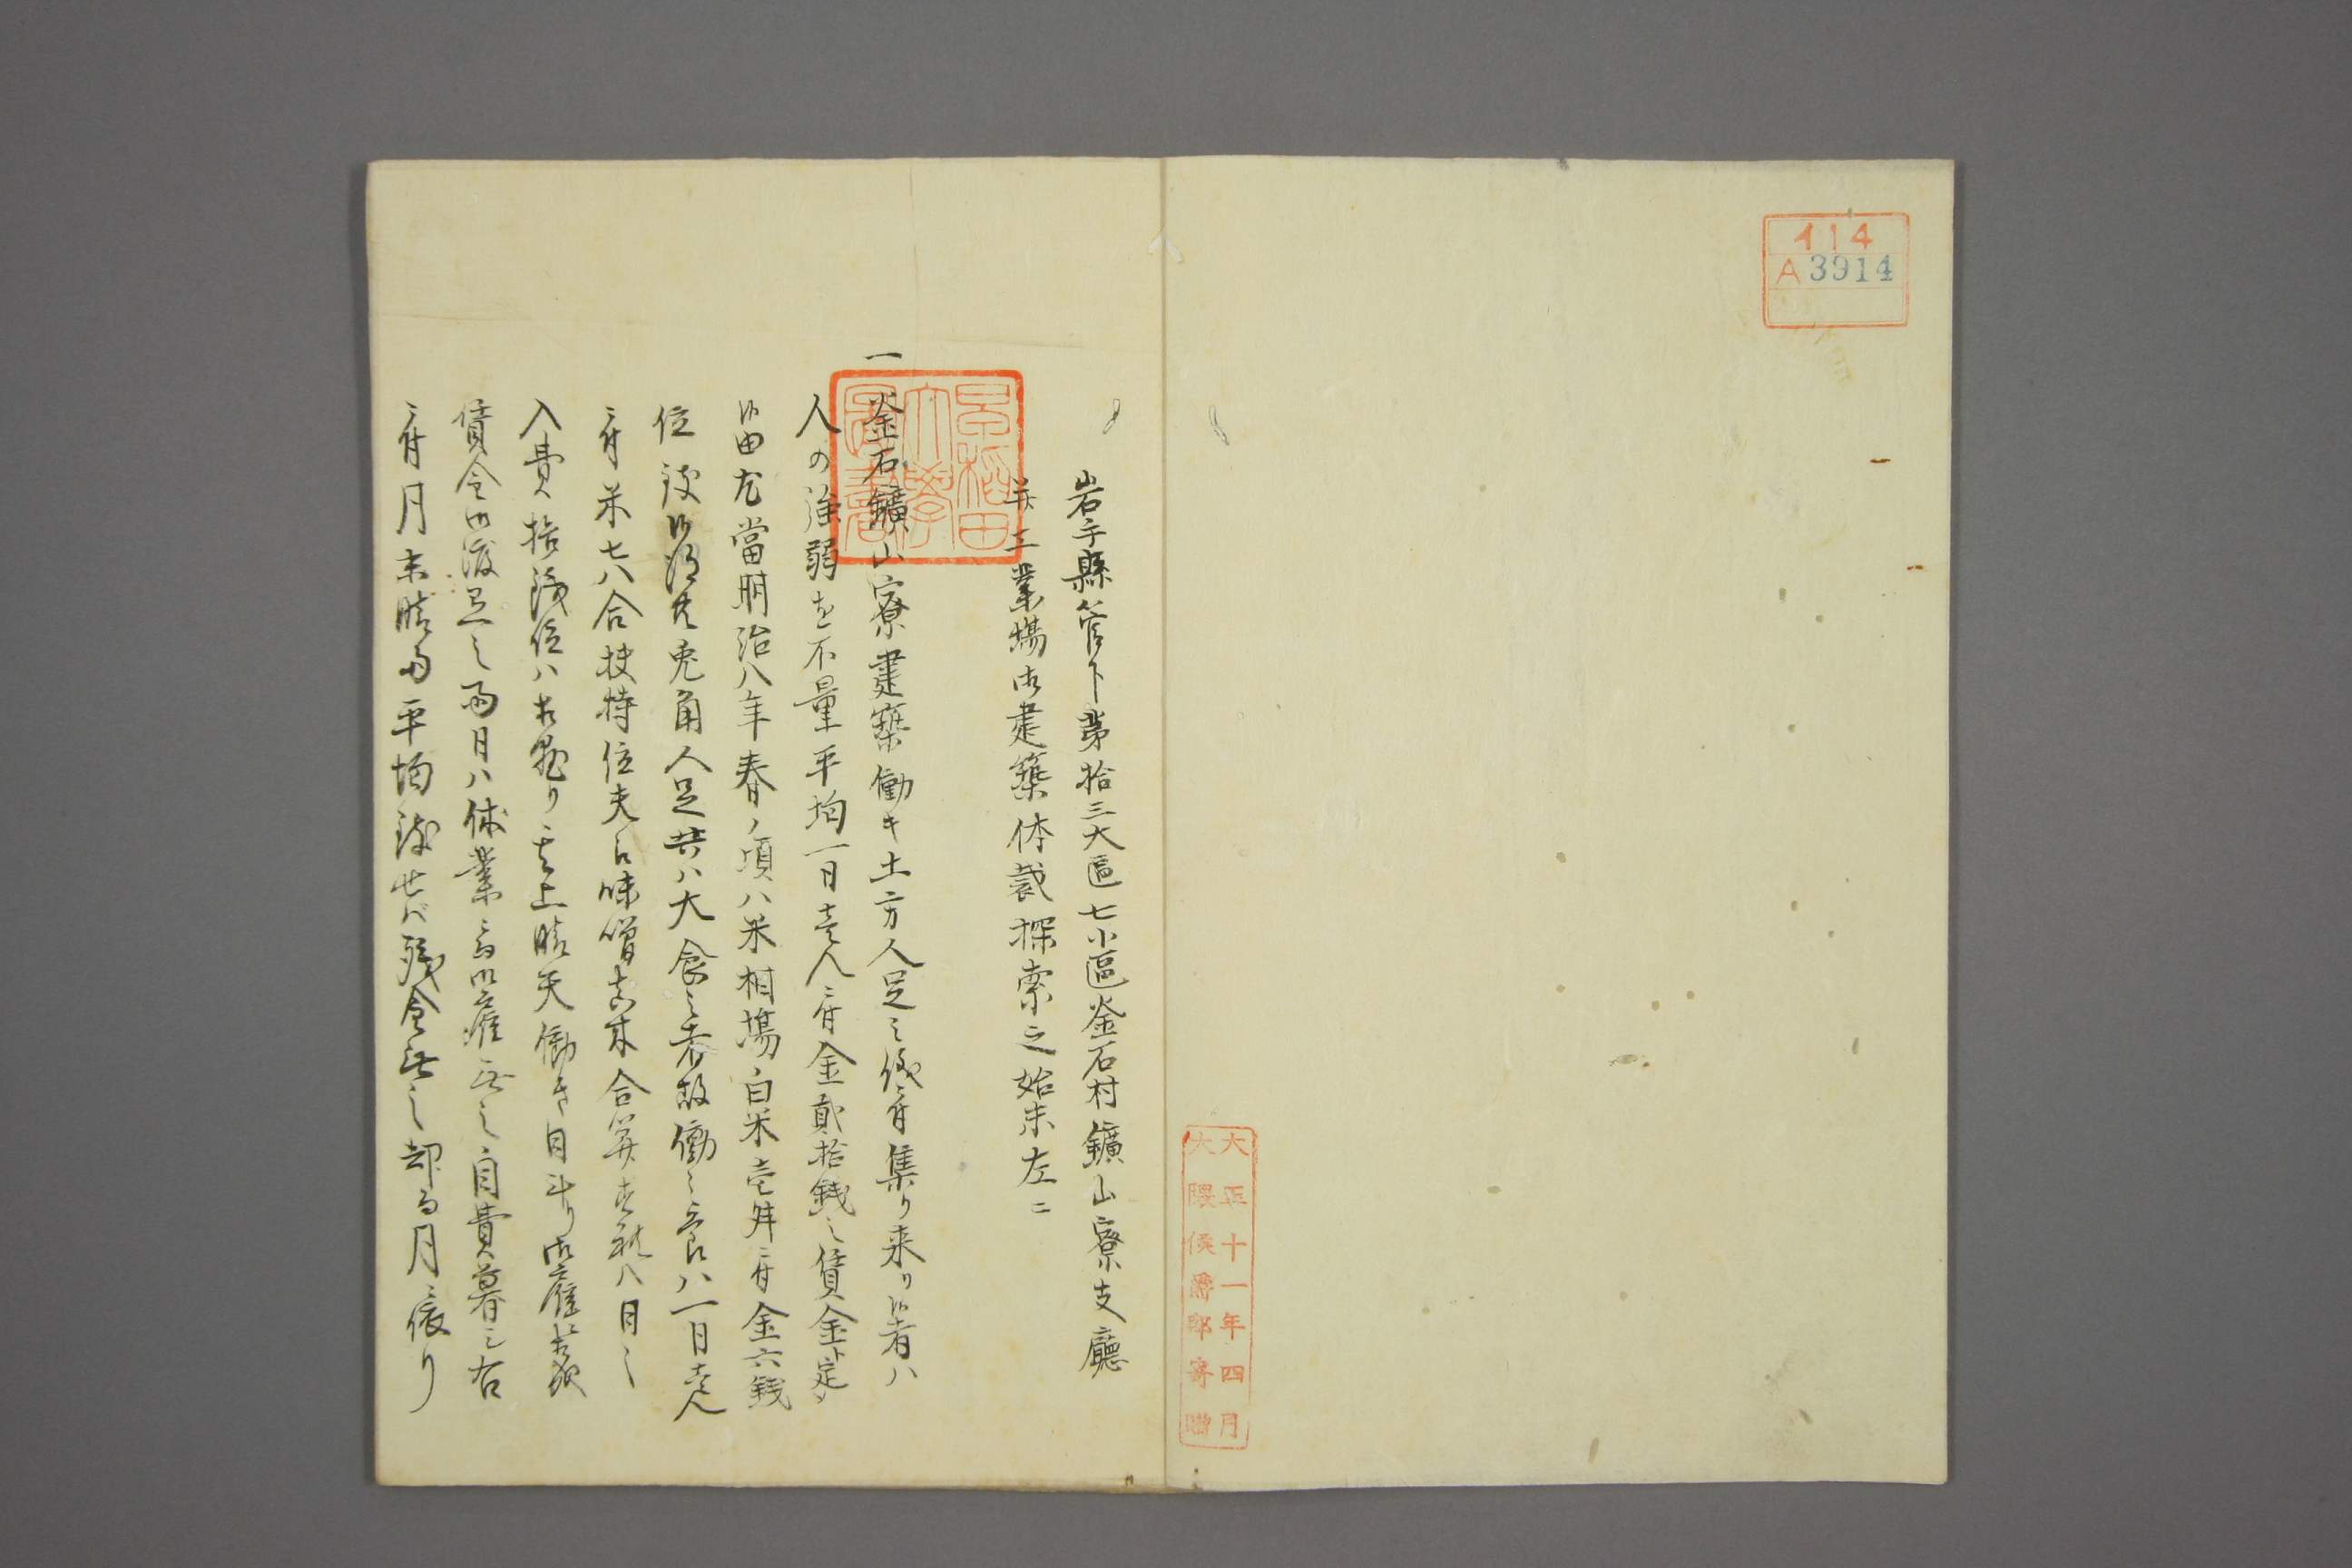 イ14
A3914
大正十一年四月
大隈侯爵邸寄贈
岩手縣管下第拾三大區七小區釜石村鑛山寮支廳
并工業場御建築体裁探索之始末左ニ
早稲田大學圖書
一
釜石鑛山寮建築働キ土方人足之儀ニ付集り来り候者ハ
人の強弱を不量平均一日壱人ニ付金貳拾銭之賃金ニ定メ
候由尤當明治八年春ノ頃ハ米相場白米壱舛ニ付金六銭
位 兎角人足共ハ大食之者故働之節ハ一日壱人
ニ付米七八合扶持位夫に味噌 合算 八日之
入費拾銭位ハ相懸り其上晴天働き日斗り御雇相成
賃金御渡是之雨日ハ休業ニ而御雇無之自費暮ニ右
ニ付月末晴雨平均致せバ残金無之却而月ニ依り